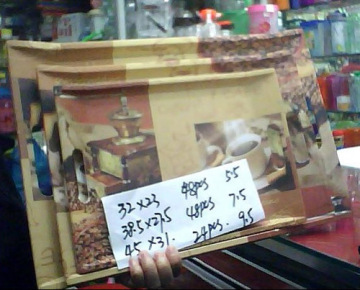 32x23 48pcs 5.5
38.5x27.5 48pcs 7.5
45x31. 24pcs. 9.5